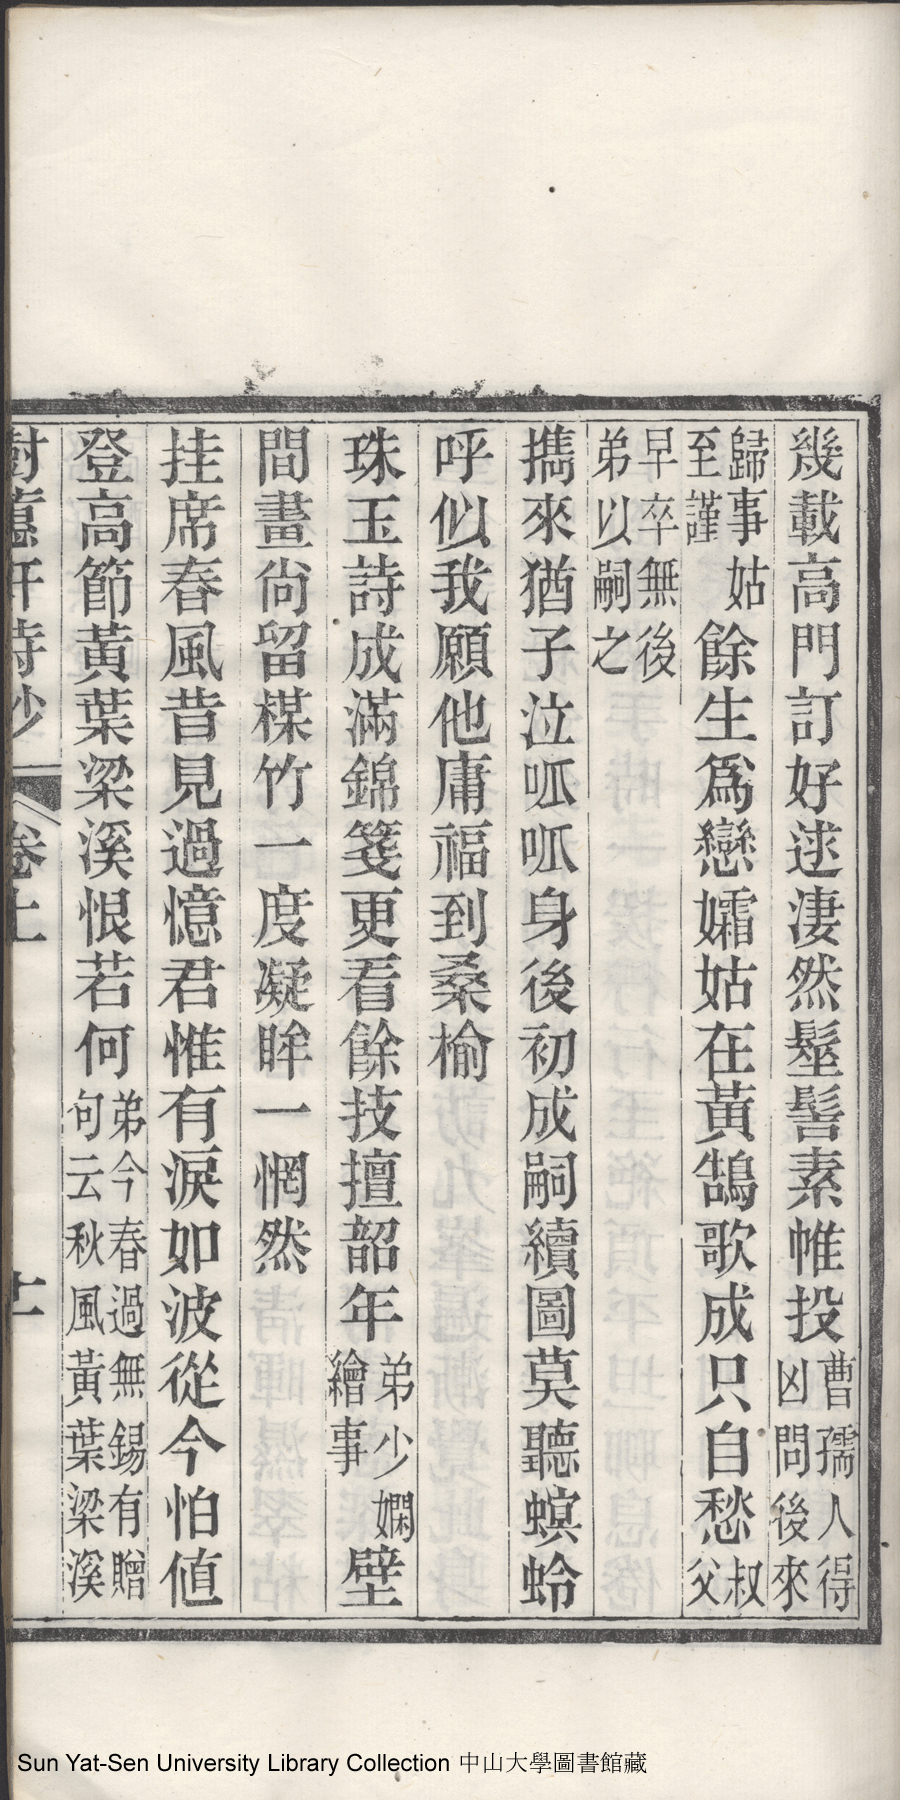 幾載高門訂好逑淒然髽髻素帷投曹孺人得凶問後來
歸事姑至謹餘生爲戀孀姑在黃鵠歌成只自愁叔父
早卒無後弟以嗣之
攜來猶子泣呱呱身後初成嗣續圖莫聽螟蛉
呼似我願他庸福到桑榆
珠玉詩成滿錦箋更看餘技擅韶年弟少嫻繪事壁
間畫尚留楳竹一度凝眸一惘然
挂席春風昔見過憶君惟有淚如波從今怕値
登高節黃葉梁溪恨若何弟今春過無錫有贈句云秋風黃葉梁溪
樹蕙軒詩鈔 卷上 十
Sun Yat-Sen University Library Collection 中山大學圖書館藏